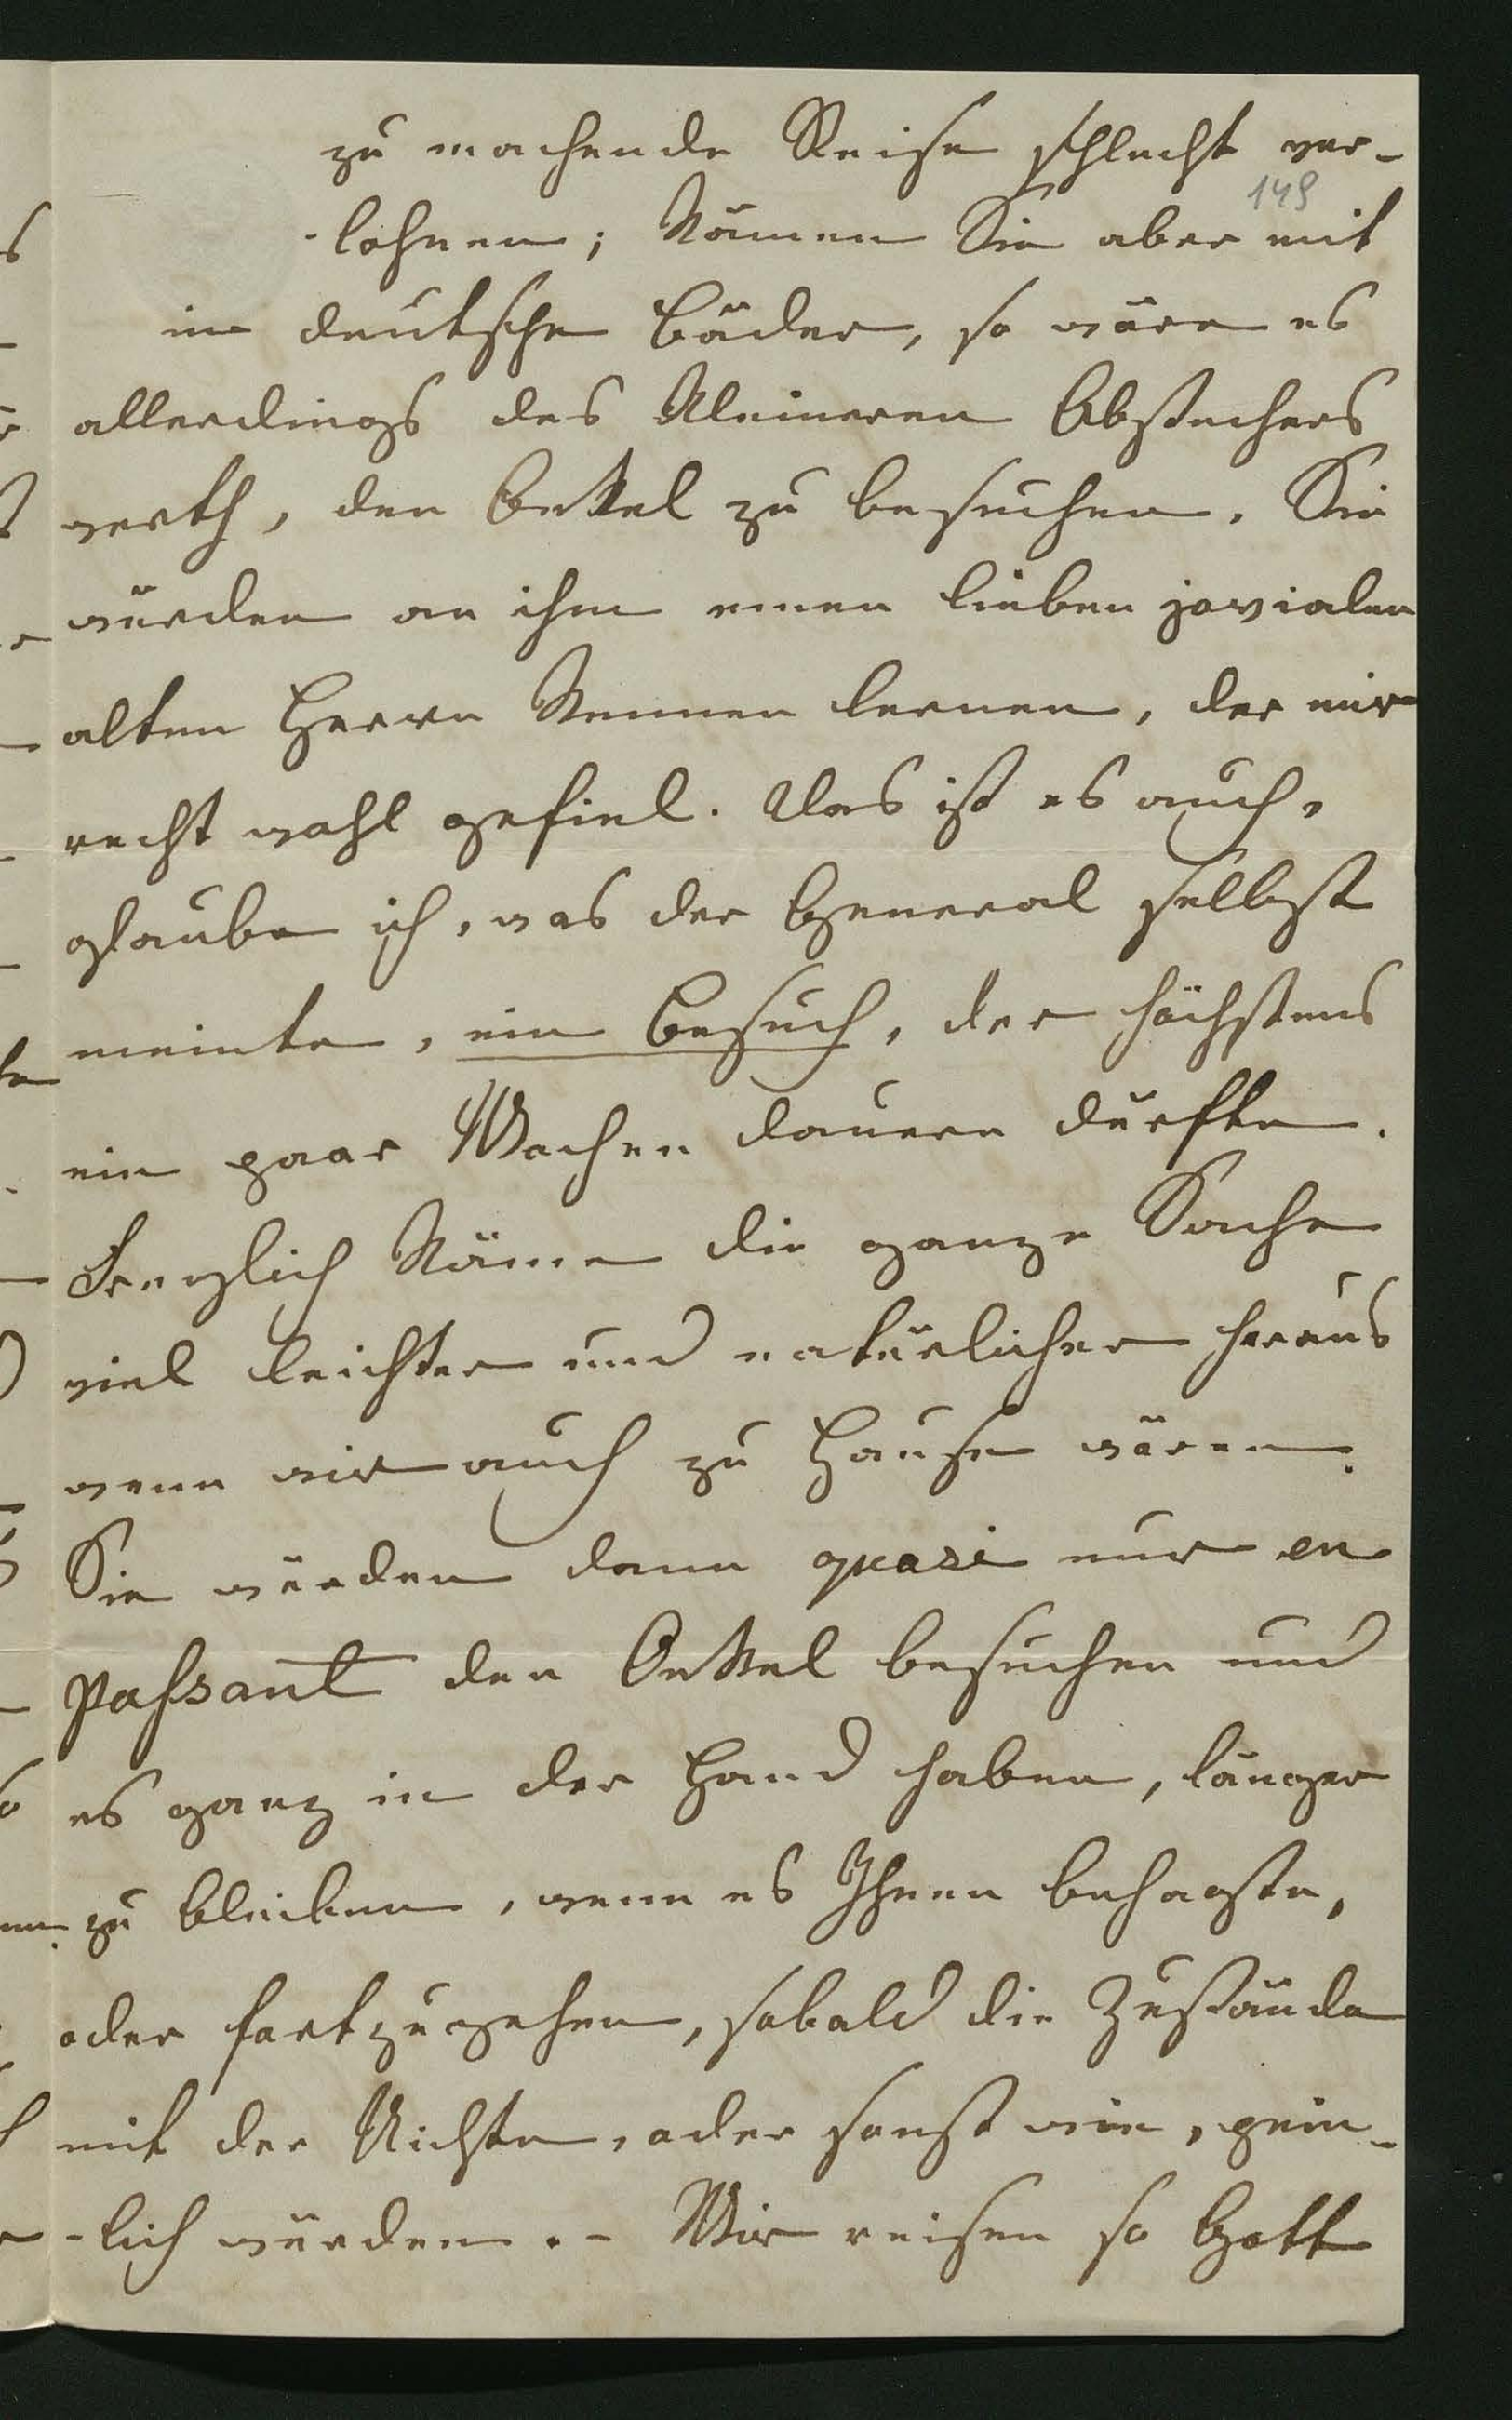 zu machende Reise schlecht ver-
149
-lohnen; kämen Sie aber mit
in deutsche Bäder, so wäre es
allerdings des kleineren Abstechers
werth, den Onkel zu besuchen. Sie
würden an ihm einen lieben jovialen
alten Herrn kennen lernen, der mir
recht wohl gefiel. Das ist es auch,
glaube ich, was der General selbst
meinte, ein Besuch, der höchstens
ein paar Wochen dauern dürfte.
Freylich käme die ganze Sache
viel leichter und natürlicher heraus
wenn wir auch zu Hause wären.
Sie würden dann quasi nur en
passant den Onkel besuchen und
es ganz in der Hand haben, länger
zu bleiben, wenn es Ihnen behagte,
oder fortzugehen, sobald die Zustände
mit der Nichte, oder sonst wie, pein-
-lich würden. - Wir reisen so Gott